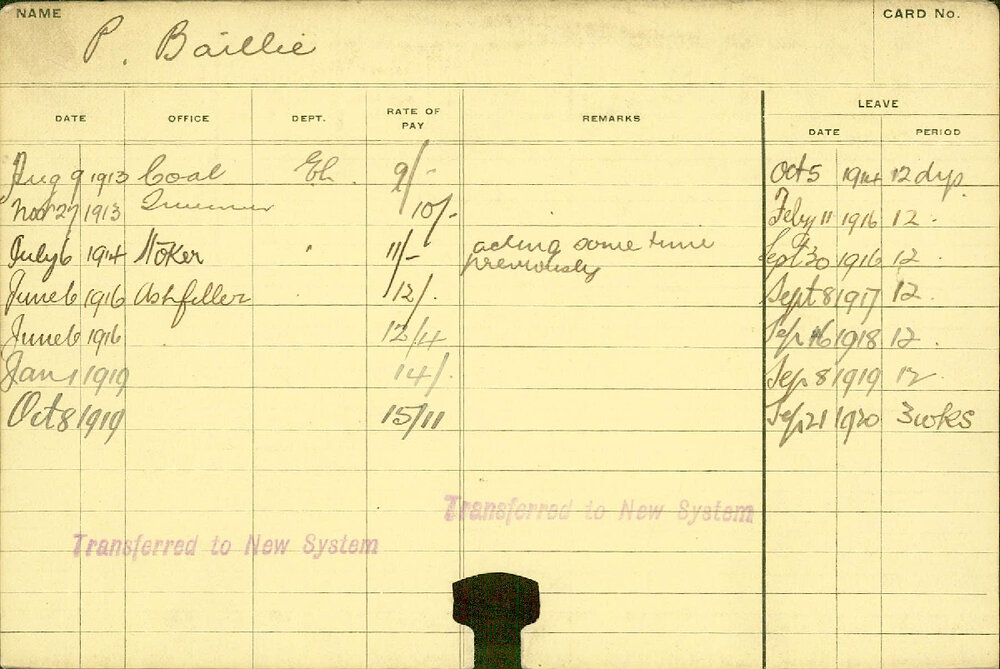 NAME
P. Baillie
CARD No.
DATE OFFICE DEPT. RATE OF PAY REMARKS LEAVE
DATE PERIOD
Aug 9 1913 Coal 9/- Oct 5 1914 12 dys.
Nov 27 1913 10/- Feby 11 1916 12 .
July 6 1914 Stoker " 11/- acting some time previously Sept 30 1916 12 .
June 6 1916 Ashfiller . 12/. Sept 8 1917 12 .
June 6 1916 12/4 Sep 16 1918 12 .
Jan 1 1919 14/. Sep 8 1919 12
Oct 8 1919 15/11 Sep 21 1920 3 wks
Transferred to New System
Transferred to New System